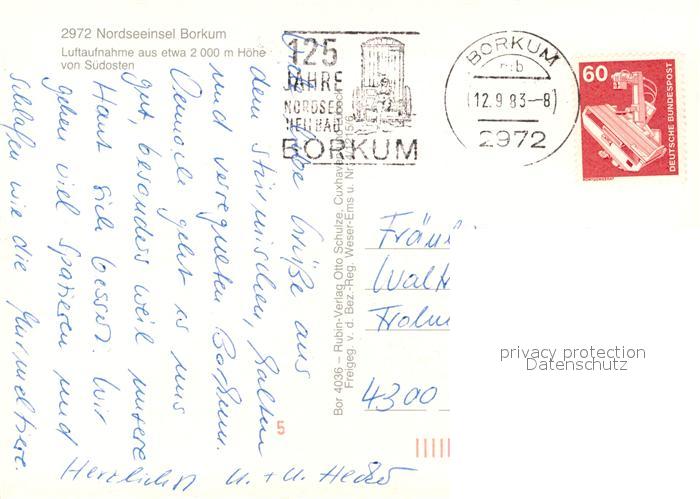 2972 Nordseeinsel Borkum
Luftaufnahme aus etwa 2 000 m Höhe
von Südosten
125
JAHRE
NORDSEE
HEILBAD
BORKUM
BORKUM
mb
12.9.83-8
2972
60
DEUTSCHE BUNDESPOST
RÖNTGENGERÄT
liebe Grüße aus
dem stürmischen, kalten
und verregneten Borkum.
Dennoch geht es uns
gut, besonders weil unsere
Haut sich bessert. Wir
gehen viel spazieren und
schlafen wie die Murmeltiere.
Herzlichst
Bor 4036 – Rubin-Verlag Otto Schulze, Cuxhaven
Freigeg. v. d. Bez.-Reg. Weser-Ems u. Nr
Fräul
Walt
Frohn
4300
5
privacy protection
Datenschutz